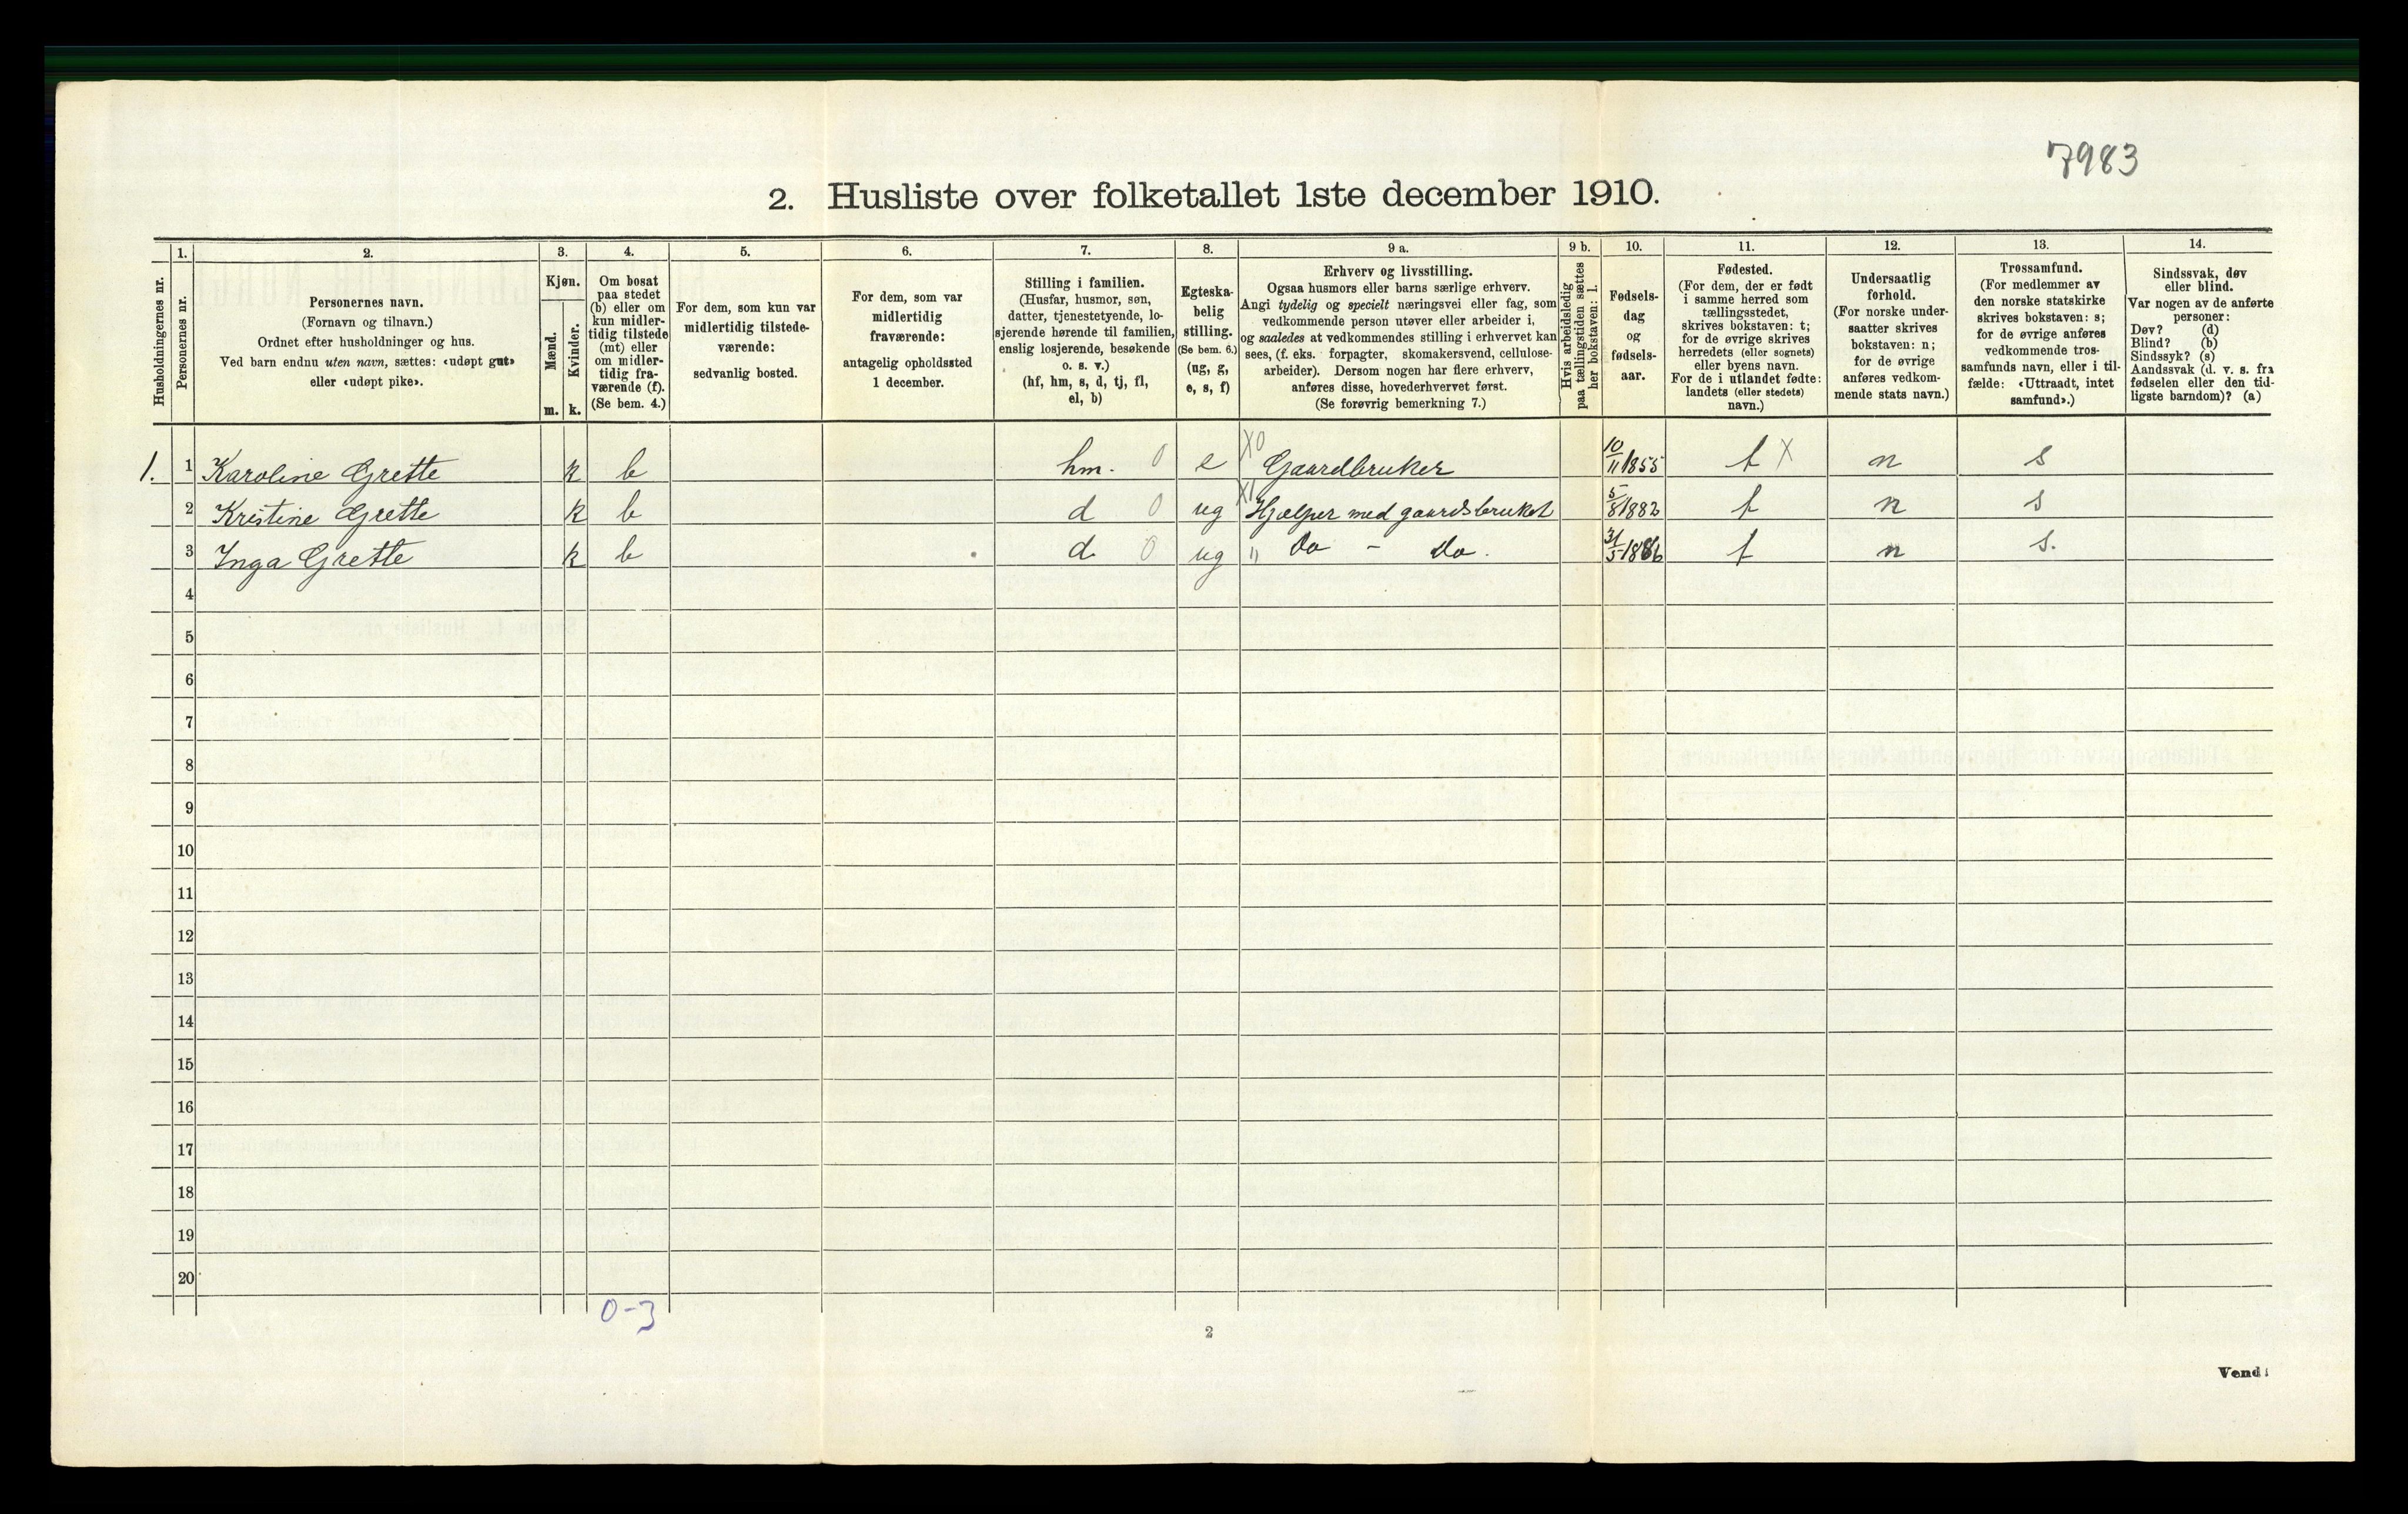 7983
2. Husliste over folketallet 1ste december 1910.
Husholdningernes nr.
1.
Personernes nr.
2.
Personernes navn.
(Fornavn og tilnavn.)
Ordnet efter husholdninger og hus.
Ved barn endnu uten navn, sættes: «udøpt gut»
eller «udøpt pike».
3.
Kjøn.
Mænd.
m.
Kvinder.
k.
4.
Om bosat
paa stedet
(b) eller om
kun midler-
tidig tilstede
(mt) eller
om midler-
tidig fra-
værende (f).
(Se bem. 4.)
5.
For dem, som kun var
midlertidig tilstede-
værende:
sedvanlig bosted.
6.
For dem, som var
midlertidig
fraværende:
antagelig opholdssted
1 december.
7.
Stilling i familien.
(Husfar, husmor, søn,
datter, tjenestetyende, lo-
sjerende hørende til familien,
enslig losjerende, besøkende
o. s. v.)
(hf, hm, s, d, tj, fl,
el, b)
8.
Egteska-
belig
stilling.
(Se bem. 6.)
(ug, g,
e, s, f)
9 a.
Erhverv og livsstilling.
Ogsaa husmors eller barns særlige erhverv.
Angi tydelig og specielt næringsvei eller fag, som
vedkommende person utøver eller arbeider i,
og saaledes at vedkommendes stilling i erhvervet kan
sees, (f. eks. forpagter, skomakersvend, cellulose-
arbeider). Dersom nogen har flere erhverv,
anføres disse, hovederhvervet først.
(Se forøvrig bemerkning 7.)
9 b.
Hvis arbeidsledig
paa tællingstiden sættes
her bokstaven: l.
10.
Fødsels-
dag
og
fødsels-
aar.
11.
Fødested.
(For dem, der er født
i samme herred som
tællingsstedet,
skrives bokstaven: t;
for de øvrige skrives
herredets (eller sognets)
eller byens navn.
For de i utlandet fødte:
landets (eller stedets)
navn.)
12.
Undersaatlig
forhold.
(For norske under-
saatter skrives
bokstaven: n;
for de øvrige
anføres vedkom-
mende stats navn.)
13.
Trossamfund.
(For medlemmer av
den norske statskirke
skrives bokstaven: s;
for de øvrige anføres
vedkommende tros-
samfunds navn, eller i til-
fælde: «Uttraadt, intet
samfund».)
14.
Sindssvak, døv
eller blind.
Var nogen av de anførte
personer:
Døv? (d)
Blind? (b)
Sindssyk? (s)
Aandssvak (d. v. s. fra
fødselen eller den tid-
ligste barndom)? (a)
1. 1 Karoline Grette k b hm. 0 e X0 Gaardbruker 10/11 1855 t X n s
2 Kristine Grette k b d 0 ug X1 Hjælper med gaardsbruket 5/8 1882 t n s
3 Inga Grette k b d 0 ug " Do - Do. 31/5 1886 t n s.
4
5
6
7
8
9
10
11
12
13
14
15
16
17
18
19
20
0-3
2
Vend!